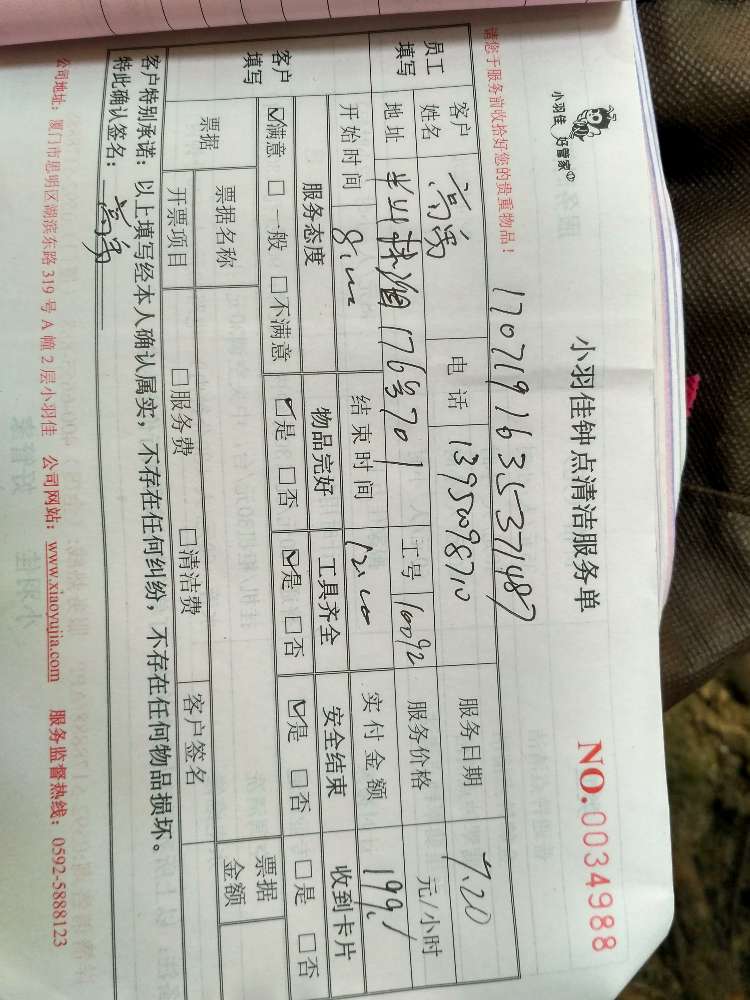 小羽佳 好管家
小羽佳钟点清洁服务单
NO.0034988
请您于服务前收拾好您的贵重物品!
1707191635371487
员工填写
客户姓名 电话 13950098710 服务日期 7.20
地址 176号701 工号 10092 服务价格 元/小时
开始时间 8:00 结束时间 12:00 实付金额 199.1
客户填写
服务态度 物品完好 工具齐全 安全结束 收到卡片
☑满意 □一般 □不满意 ☑是 □否 ☑是 □否 ☑是 □否 □是 □否
票据 票据名称 票据金额
开票项目 □服务费 □清洁费 客户签名
客户特别承诺:以上填写经本人确认属实,不存在任何纠纷,不存在任何物品损坏。
特此确认签名:
公司地址:厦门市思明区湖滨东路 319 号 A 幢 2 层小羽佳 公司网站:www.xiaoyujia.com 服务监督热线:0592-5888123